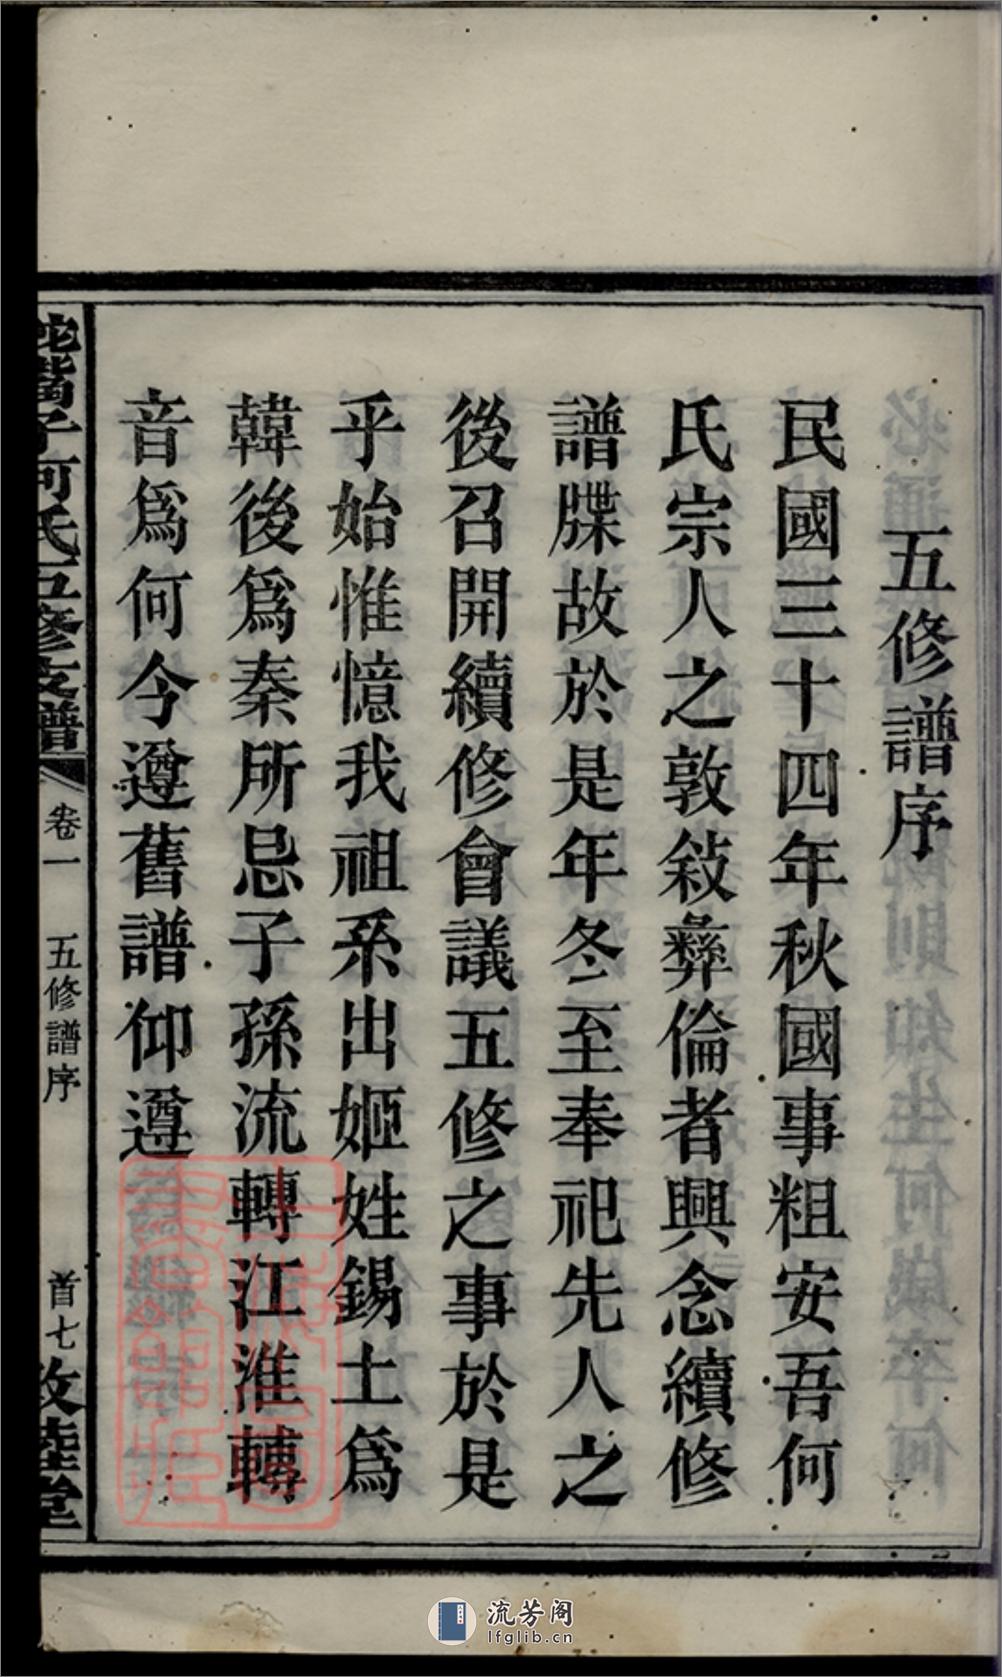 五修譜序
民國三十四年秋國事粗安吾何
氏宗人之敦敍彝倫者興念續修
譜牒故於是年冬至奉祀先人之
後召開續修會議五修之事於是
乎始惟憶我祖系出姬姓錫土爲
韓後爲秦所忌子孫流轉江淮轉
音爲何今遵舊譜仰遵
子何氏五修支譜
卷一
五修譜序
首七
敦睦堂
流芳阁
lfglib.cn